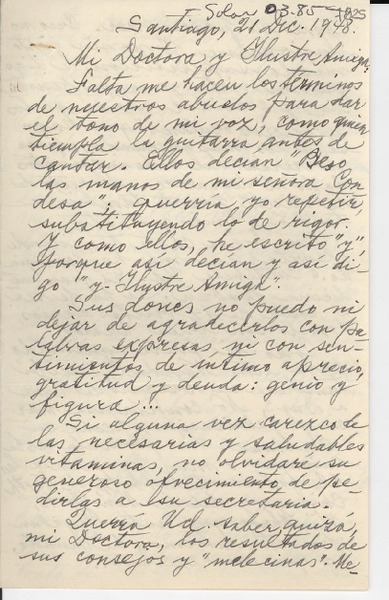 Solar 03.85 1825
Santiago, 21 Dic. 1948.
Mi Doctora y Ilustre Amiga:
Falta me hacen los términos
de nuestros abuelos para dar
el tono de mi voz, como quien
tiempla la guitarra antes de
cantar. Ellos decían "Beso
las manos de mi señora Con
desa"; querría yo repetir,
substituyendo lo de rigor.
Y como ellos, he escrito "y",
porque así decían y así di
go "y- Ilustre Amiga".
Sus dones no puedo ni
dejar de agradecerlos con pa
labras expresas ni con sen-
timientos de íntimo aprecio,
gratitud y deuda: genio y
figura...
Si alguna vez carezco de
las necesarias y saludables
vitaminas, no olvidaré su
generoso ofrecimiento de pe-
dirlas a su secretaria.
Querrá Ud. saber, quizá,
mi Doctora, los resultados de
sus consejos y "melecinas". He